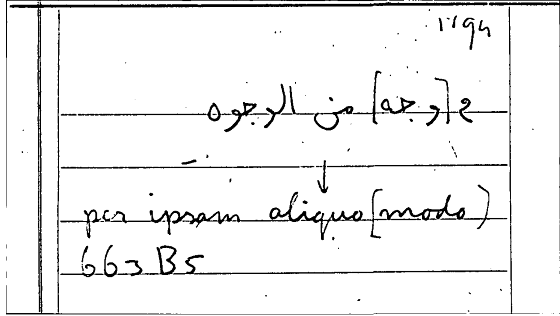 [وجه] من الوجوه
per ipsam aliquo [modo)
663 B5